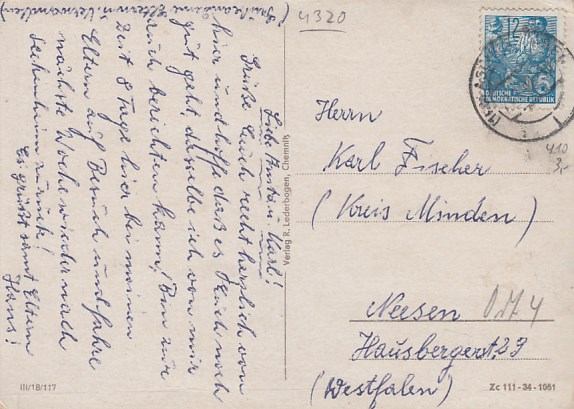 Liebe Anita u. Karl!
Grüße Euch recht herzlich von
hier und hoffe daß es Euch noch
gut geht, dasselbe ich von mir
auch berichten kann! Bin zur
Zeit 8 Tage hier bei meinen
Eltern auf Besuch und fahre
nächste Woche wieder nach
zurück!
Es grüßt samt Eltern
Hans!
Eltern u. Verwandten)
4320
Verlag R. Lederbogen, Chemnitz
12
DEUTSCHE
DEMOKRATISCHE REPUBLIK
410
3,-
Herrn
Karl Fischer
(Kreis Minden)
Neesen
Hausbergerstr. 29
(Westfalen)
III/18/117
Zc 111-34-1061